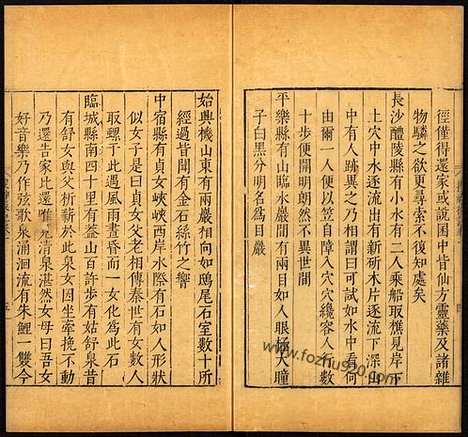 徑還家或說囷中皆仙方靈藥及諸雜
物驎之欲更尋索不復知處矣
長沙醴陵縣有小水有二人乘船取樵見岸下
土穴中水逐流出有新斫木片逐流下深山
中有人跡異之乃相謂曰可試如水中看何
由爾一人便以笠自障入穴穴纔容人行數
十步便開明朗然不異世間
平樂縣有山臨水巖間有兩目如人眼極大瞳
子白黑分明名爲目巖
始興機山東有兩巖相向如鴟尾石室數十所
經過皆聞有金石絲竹之響
中宿縣有貞女峽峽西岸水際有石如人形狀
似女子是曰貞女父老相傳秦世有女數人
取螺于此遇風雨晝昏而一女化爲此石
臨城縣南四十里有蓋山百許步有姑舒泉昔
有舒女與父析薪於此泉女因坐牽挽不動
乃還告家比還唯見清泉湛然女母曰吾女
好音樂乃作弦歌泉涌洄流有朱鯉一雙今
www.fozhu920.com